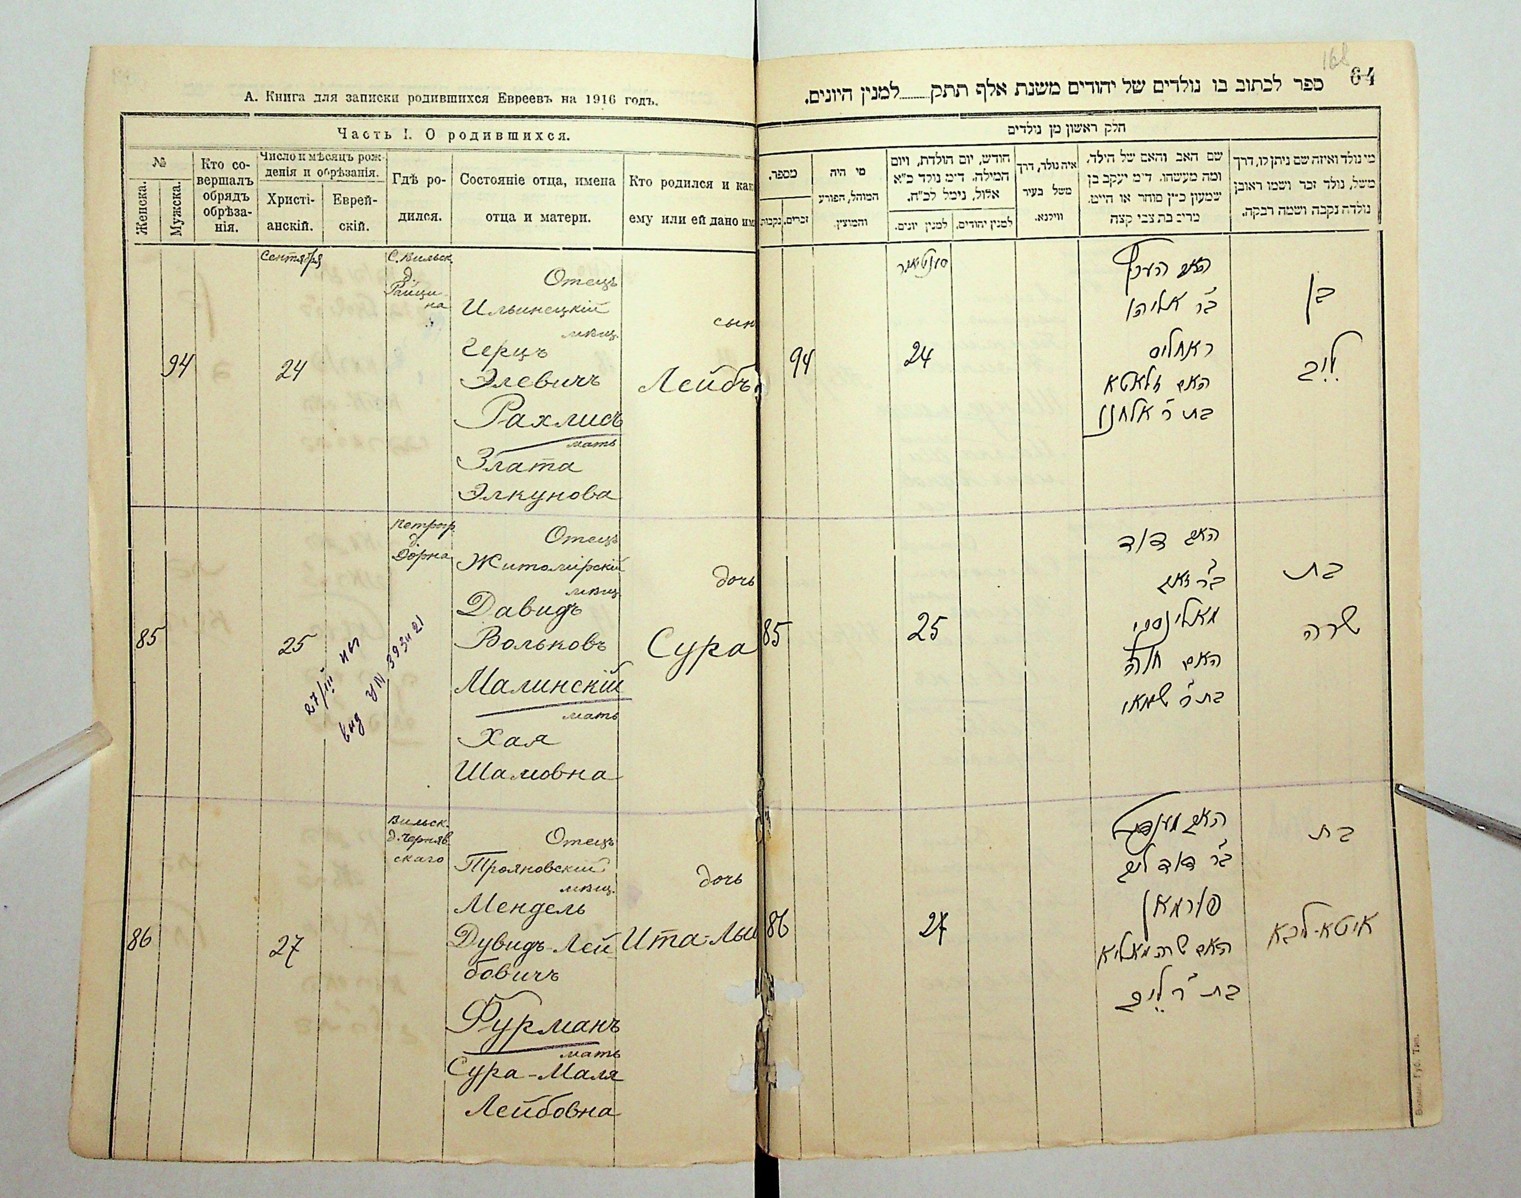 А. Книга для записки родившихся Евреевъ на 1916 годъ.
Часть I. О родившихся.
№
Женска.
Мужска.
Кто со-
вершалъ
обрядъ
обрѣза-
нія.
Число и мѣсяцъ рож
денія и обрѣзанія.
Христі-
анскій.
Еврей-
скій.
Гдѣ ро-
дился.
Состояніе отца, имена
отца и матери.
Кто родился и как
ему или ей дано им
Сентября
С. Вильск.
д.
на
Отецъ
Ильинецкій
мѣщ.
Герцъ
94
24
Элевичъ
сын
Лейбъ
Рахлисъ
мать
Злата
Элкунова
Петрогр.
д.
Отецъ
Житомірскій
мѣщ.
дочь
Давидъ
85
25
Вольковъ
Сура
Малинскій
мать
Хая
Шамовна
27/III
вид
Вильск.
д. Черняв
скаго
Отецъ
Трояновскій
мѣщ.
дочь
Мендель
86
27
Дувидъ-Лей-
бовичъ
Ита-Лы
Фурманъ
мать
Сура-Маля
Лейбовна
168
64
ספר לכתוב בו נולדים של יהודים משנת אלף תתק......למנין היונים.
חלק ראשון מן נולדים
מספר.
נקבות
זכרים.
מי היה
המוהל, הפורע
והמוצץ.
חודש, יום הולדת, ויום
המילה. ד״מ נולד כ״א
אלול, נימל לכ״ח.
למנין יונים.
למנין יהודים.
איה נולד, דרך
משל בעיר
ווילנא.
שם האב והאם של הילד.
ומה מעשהו. ד״מ יעקב בן
שמעון כ״ץ סוחר או חייט.
מרים בת צבי קצה
מי נולד ואיזה שם ניתן לו, דרך
משל, נולד זכר ושמו ראובן
נולדה נקבה ושמה רבקה.
94
24
האב הערץ
ב״ר אליהו
ראחליס
האם זלאטא
בת ר׳ אלחנן
בן
לייב
85
25
האב דוד
ב״ר זאב
מאלינסקי
האם חיה
בת ר׳ שמאי
בת
שרה
86
27
האב מענדיל
ב״ר דוד ליב
פורמאן
האם שרה מאליא
בת ר׳ לייב
בת
איטא-ליבא